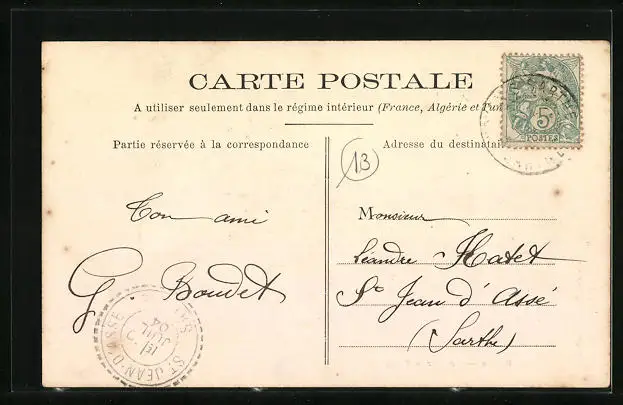 CARTE POSTALE
A utiliser seulement dans le régime intérieur (France, Algérie et Tun
Partie réservée à la correspondance
Adresse du destinatai
13
5c
POSTES
SARTHE
Ton ami
G. Boudet
Monsieur
Léandre Hatet
St Jean d'Assé
(Sarthe)
ST JEAN-D'ASSÉ
JUIL
04